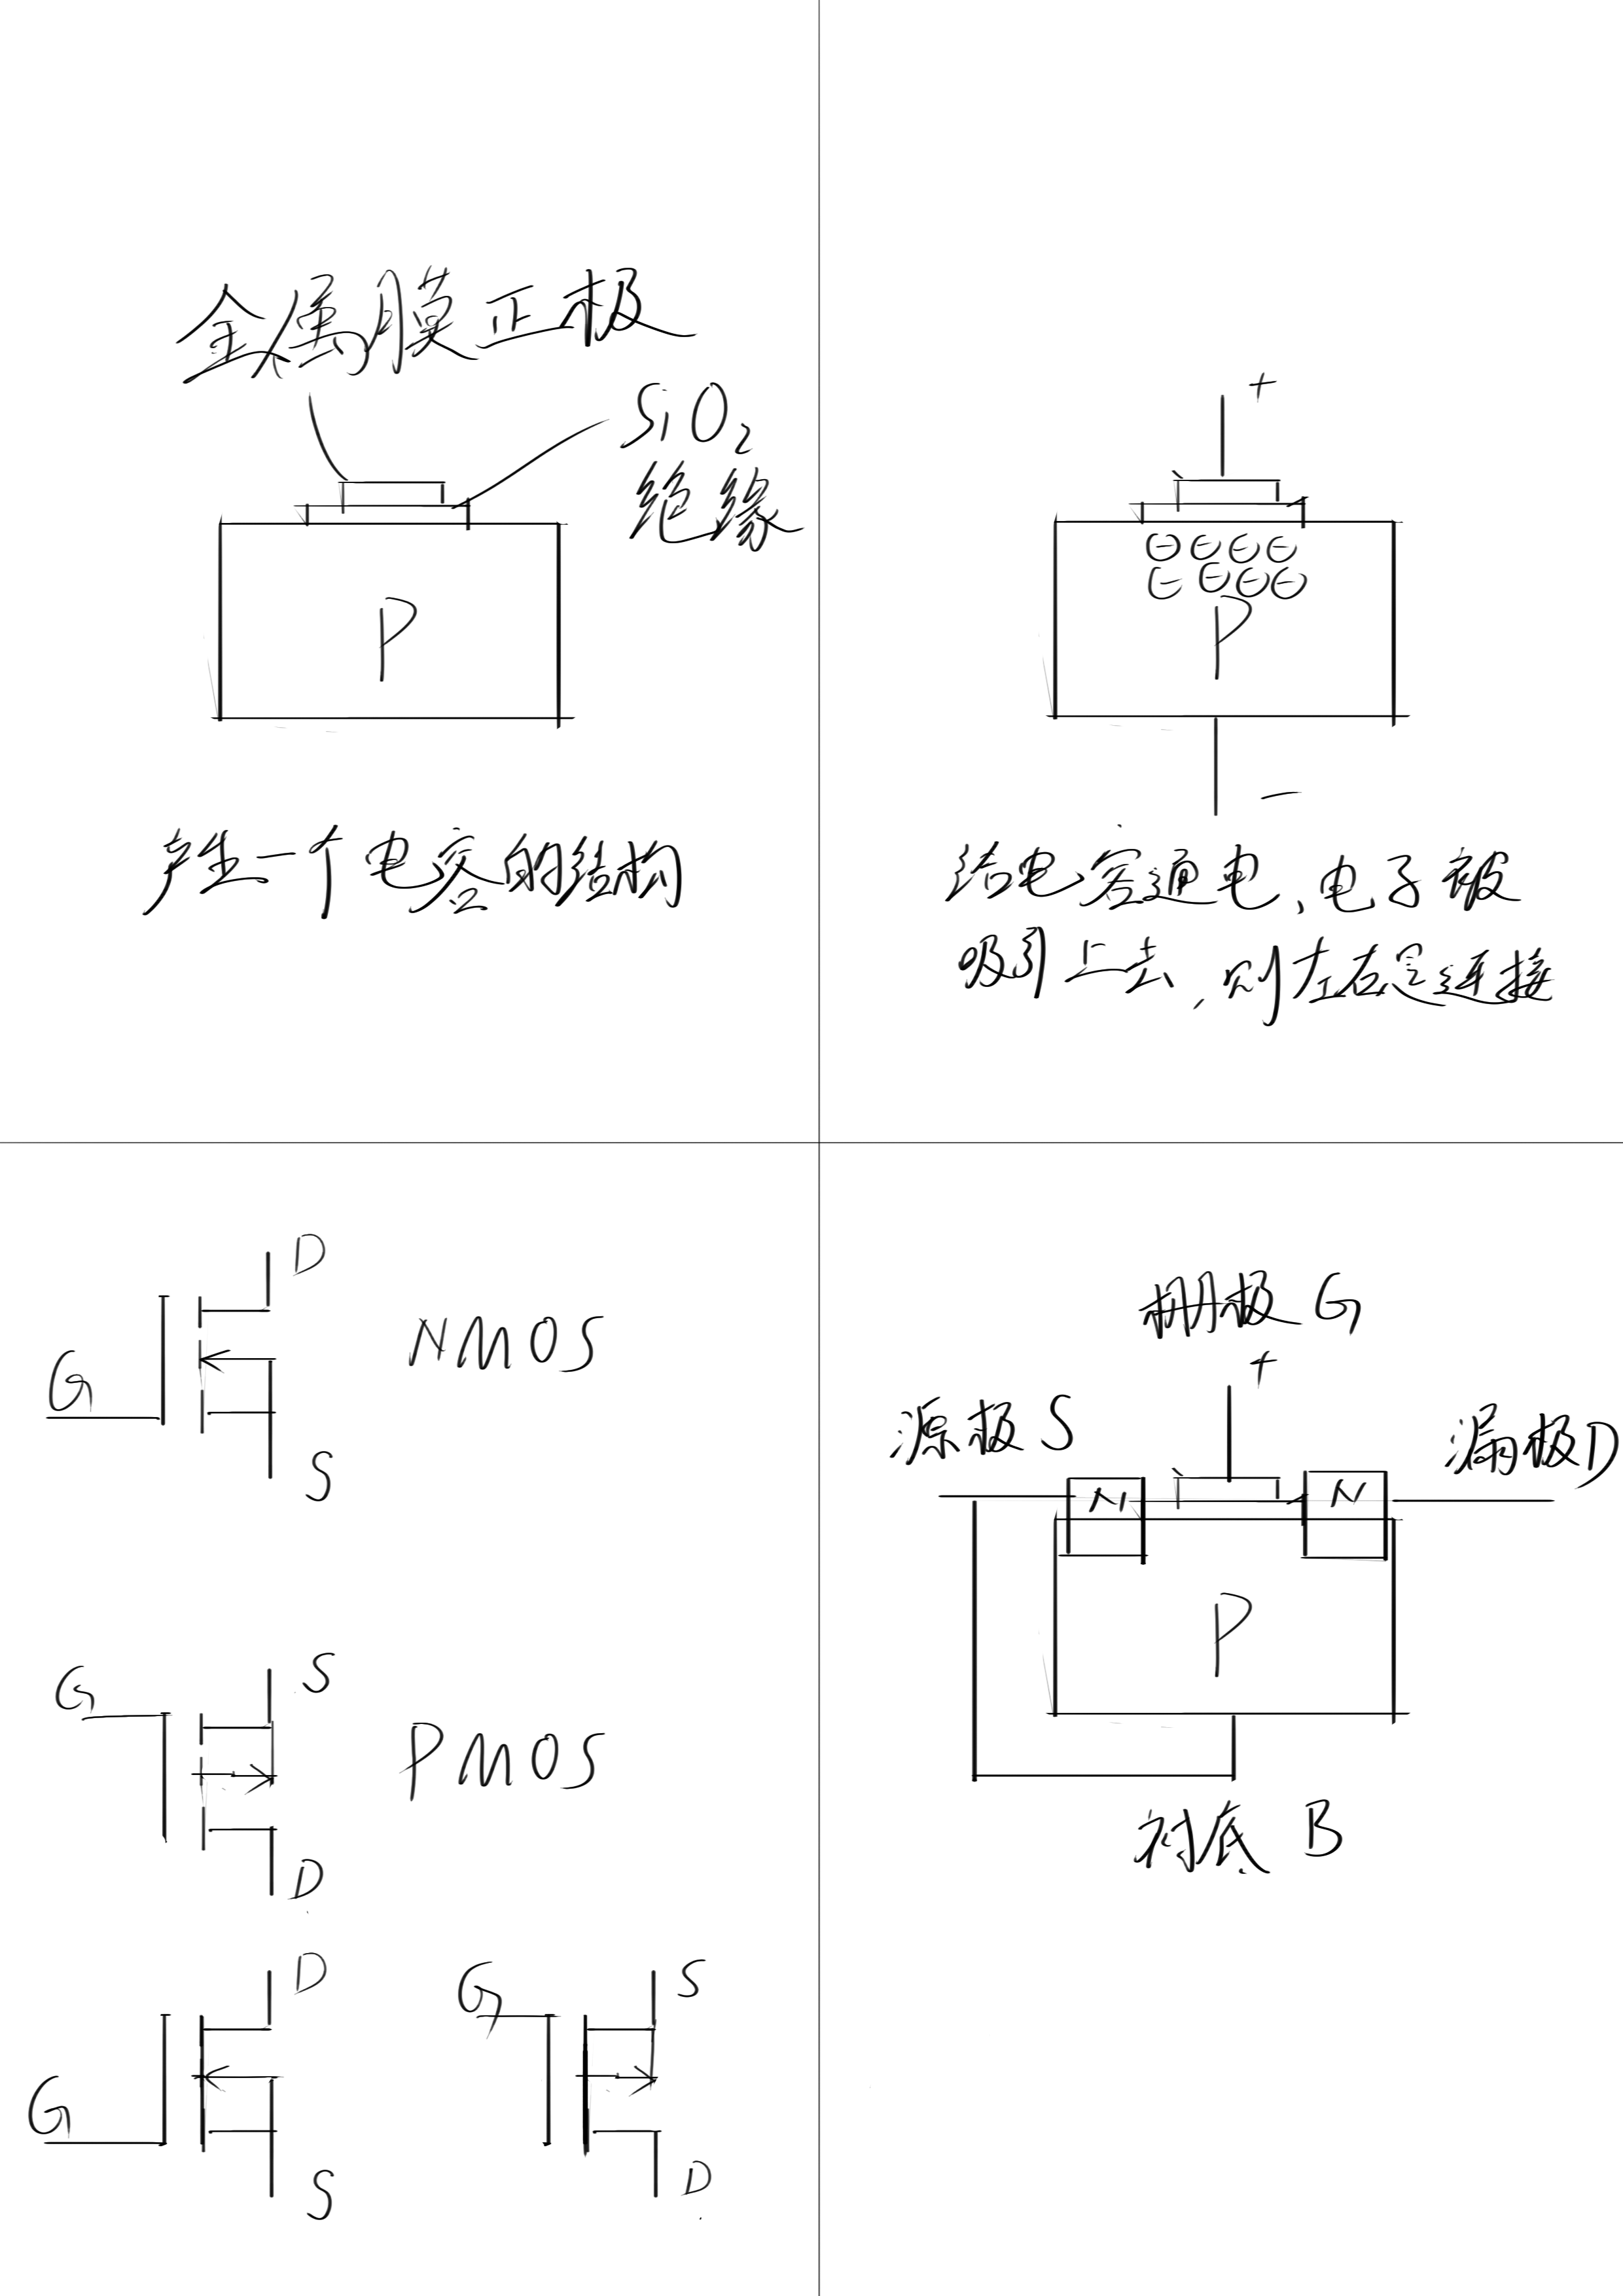 金属膜正极
SiO₂
绝缘
P
产生一个电容的结构
+
⊖⊖⊖⊖
⊖⊖⊖⊖
P
−
给电容通电、电子被
吸引上去,则左右是连接
D
G
NMOS
S
S
G
PMOS
D
D
G
S
S
G
D
栅极 G
+
源极 S
漏极 D
N
N
P
衬底 B